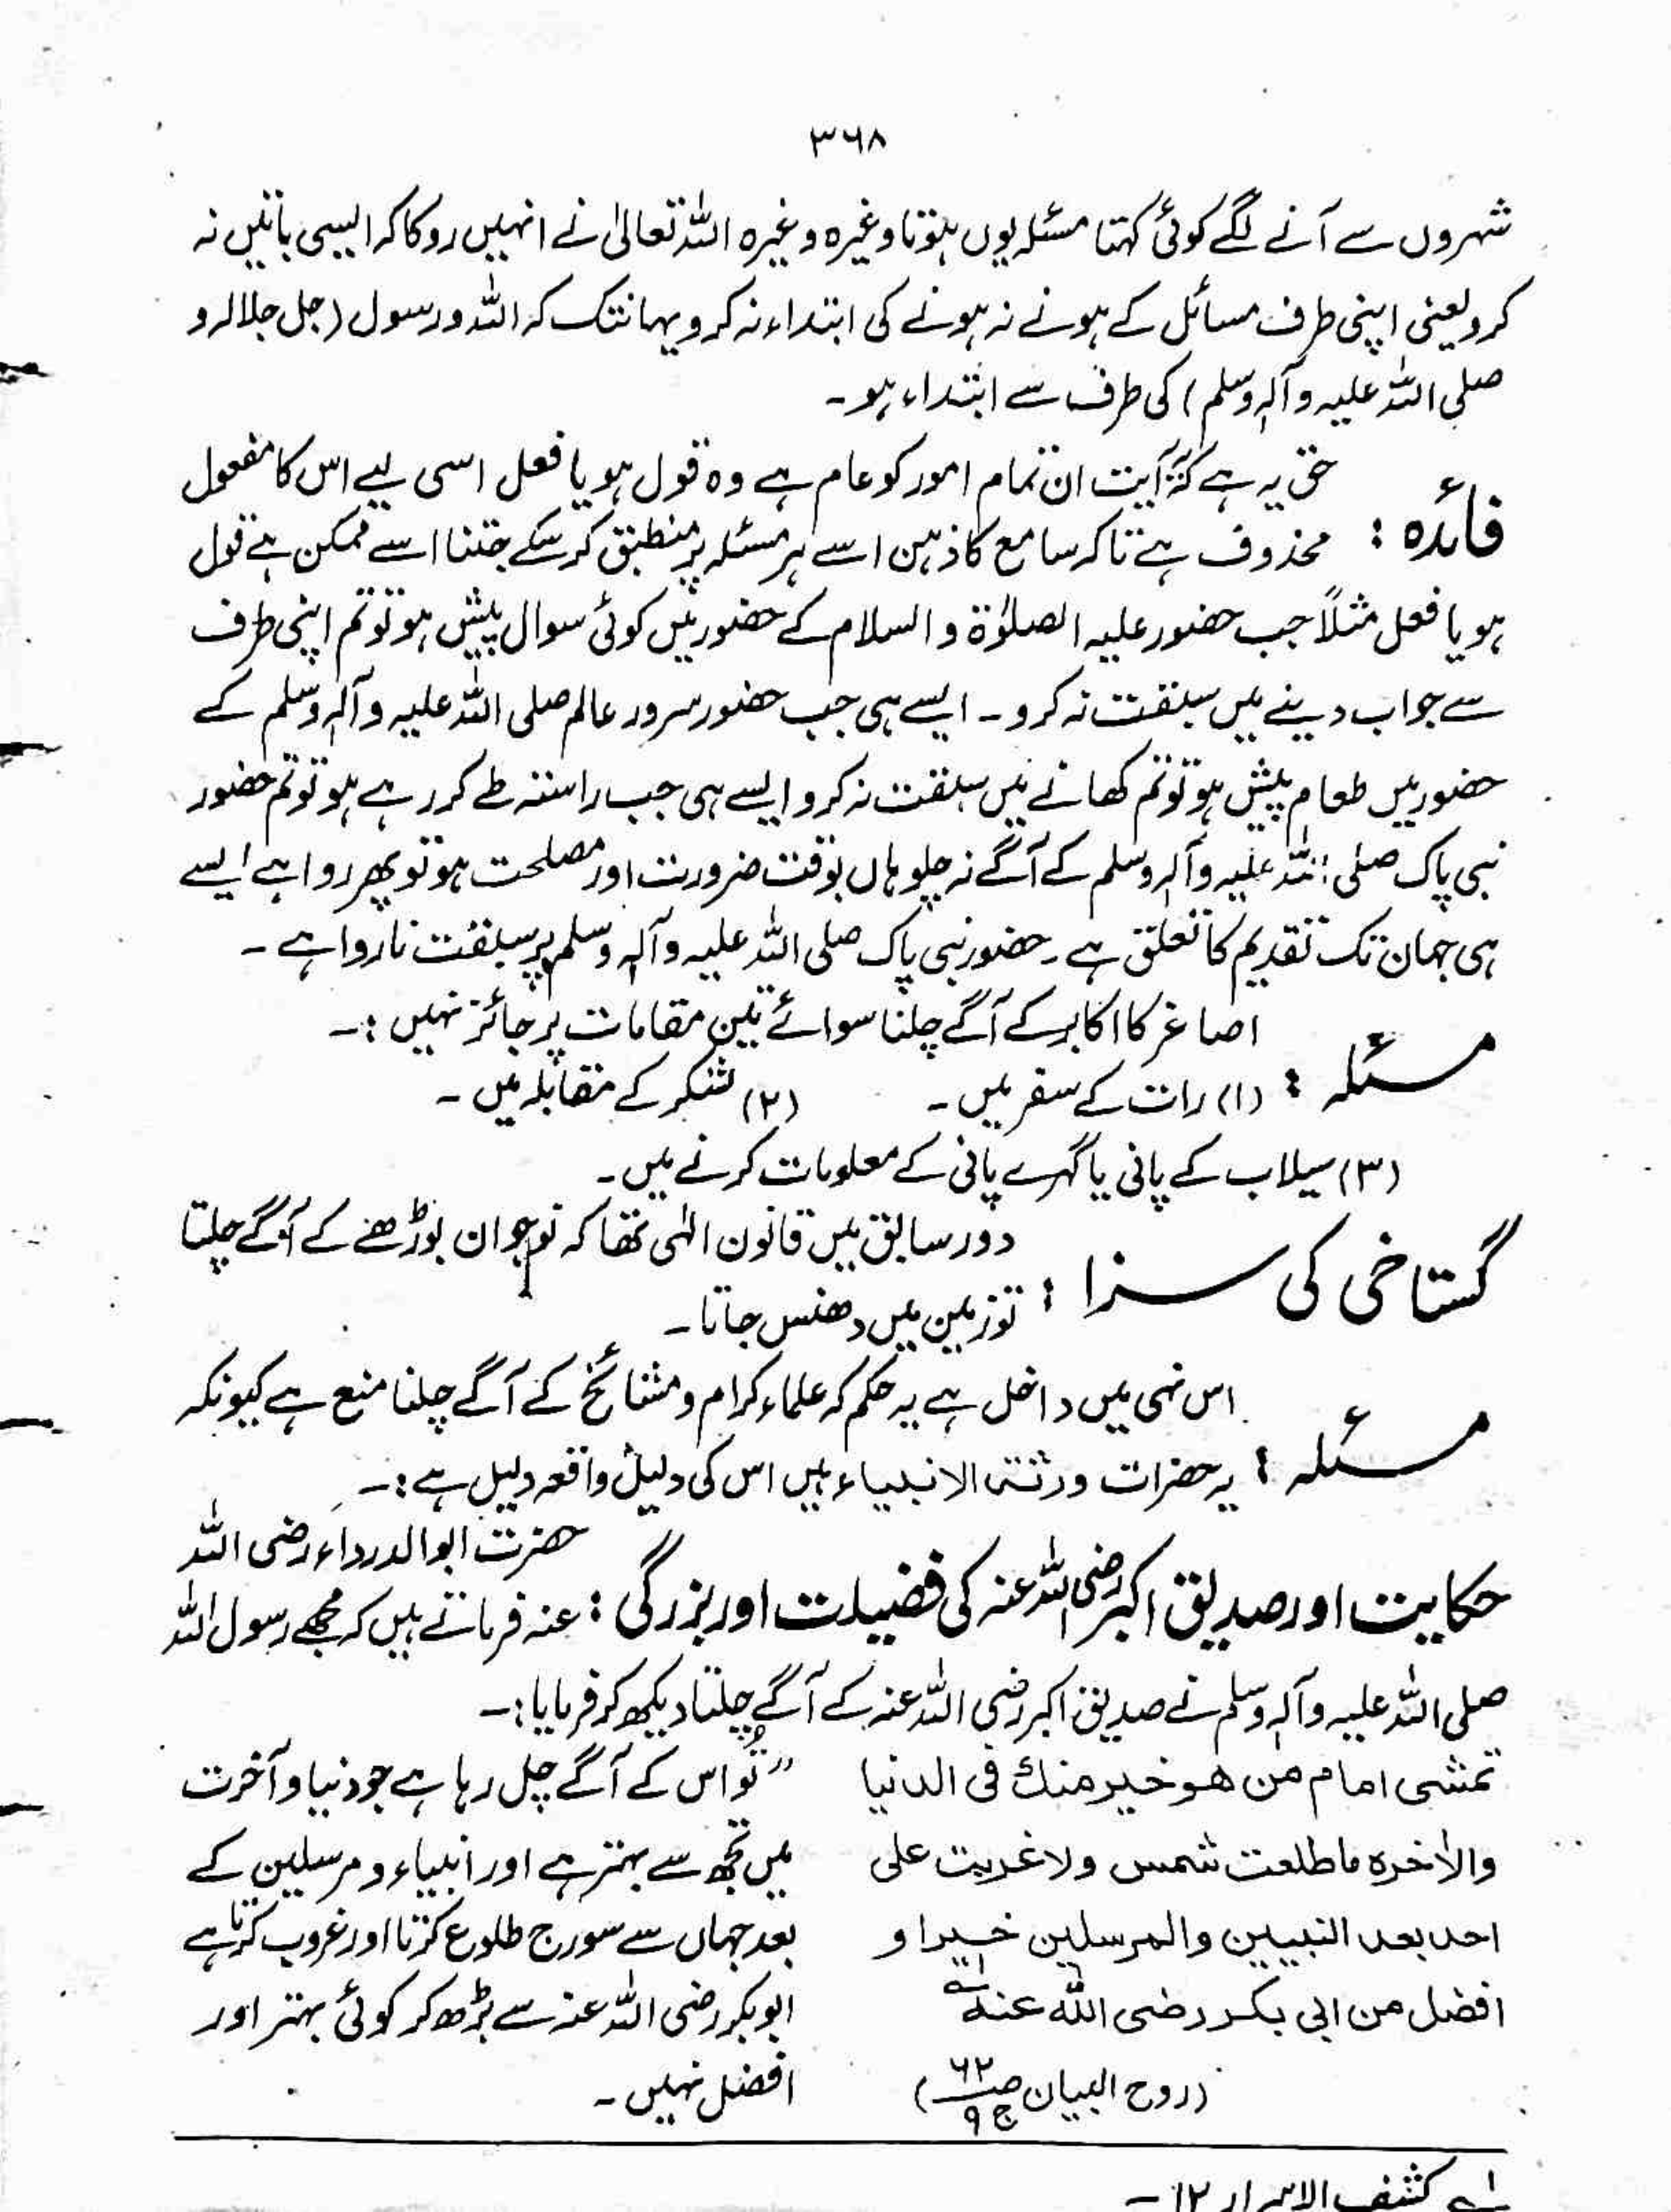 ۳۶۸
شہروں سے آنے لگے کوئی کہتا مسئلہ یوں ہوتا وغیرہ وغیرہ اللہ تعالیٰ نے انہیں روکا کہ ایسی باتیں نہ
کرو یعنی اپنی طرف مسائل کے ہونے نہ ہونے کی ابتداء نہ کرو یہانتک کہ اللہ و رسول (جل جلالہ و
صلی اللہ علیہ وآلہ وسلم) کی طرف سے ابتداء ہو۔
فائدہ : حق یہ ہے کہ آیت ان تمام امور کو عام ہے وہ قول ہو یا فعل اسی لیے اس کا مفعول
محذوف ہے تاکہ سامع کا ذہن اسے ہر مسئلہ پر منطبق کر سکے جتنا اسے ممکن ہے قول
ہو یا فعل مثلاً جب حضور علیہ الصلوٰۃ والسلام کے حضور میں کوئی سوال پیش ہو تو تم اپنی طرف
سے جواب دینے میں سبقت نہ کرو۔ ایسے ہی جب حضور سرور عالم صلی اللہ علیہ وآلہ وسلم کے
حضور میں طعام پیش ہو تو تم کھانے میں سبقت نہ کرو ایسے ہی جب راستہ طے کر رہے ہو تو تم حضور
نبی پاک صلی اللہ علیہ وآلہ وسلم کے آگے نہ چلو ہاں بوقت ضرورت اور مصلحت ہو تو پھر روا ہے ایسے
ہی جہان تک تقدیم کا تعلق ہے۔ حضور نبی پاک صلی اللہ علیہ وآلہ وسلم پر سبقت ناروا ہے۔
مسئلہ : اصاغر کا اکابر کے آگے چلنا سوائے تین مقامات پر جائز نہیں :۔
(۱) رات کے سفر میں۔ (۲) لشکر کے مقابلہ میں۔
(۳) سیلاب کے پانی یا گہرے پانی کے معلومات کرنے میں۔
گستاخی کی سزا : دور سابق میں قانون الٰہی تھا کہ نوجوان بوڑھے کے آگے چلتا
تو زمین میں دھنس جاتا۔
مسئلہ : اس نہی میں داخل ہے یہ حکم کہ علماء کرام و مشائخ کے آگے چلنا منع ہے کیونکہ
یہ حضرات ورثتہ الانبیاء ہیں اس کی دلیل واقعہ دلیل ہے :۔
حکایت اور صدیق اکبر رضی اللہ عنہ کی فضیلت اور بزرگی : حضرت ابوالدرداء رضی اللہ
عنہ فرماتے ہیں کہ مجھے رسول اللہ
صلی اللہ علیہ وآلہ وسلم نے صدیق اکبر رضی اللہ عنہ کے آگے چلتا دیکھ کر فرمایا :۔
تمشی امام من هو خیر منك فی الدنیا
والأخرہ ماطلعت شمس ولا غربت علی
احد بعد النبیین والمرسلین خیرا و
افضل من ابی بکر رضی الله عنه لے
(روح البیان ص۶۲ ج۹)
"تُو اس کے آگے چل رہا ہے جو دنیا و آخرت
میں تجھ سے بہتر ہے اور انبیاء و مرسلین کے
بعد جہاں سے سورج طلوع کرتا اور غروب کرتا ہے
ابوبکر رضی اللہ عنہ سے بڑھ کر کوئی بہتر اور
افضل نہیں۔
لے کشف الاسرار ۱۲۔